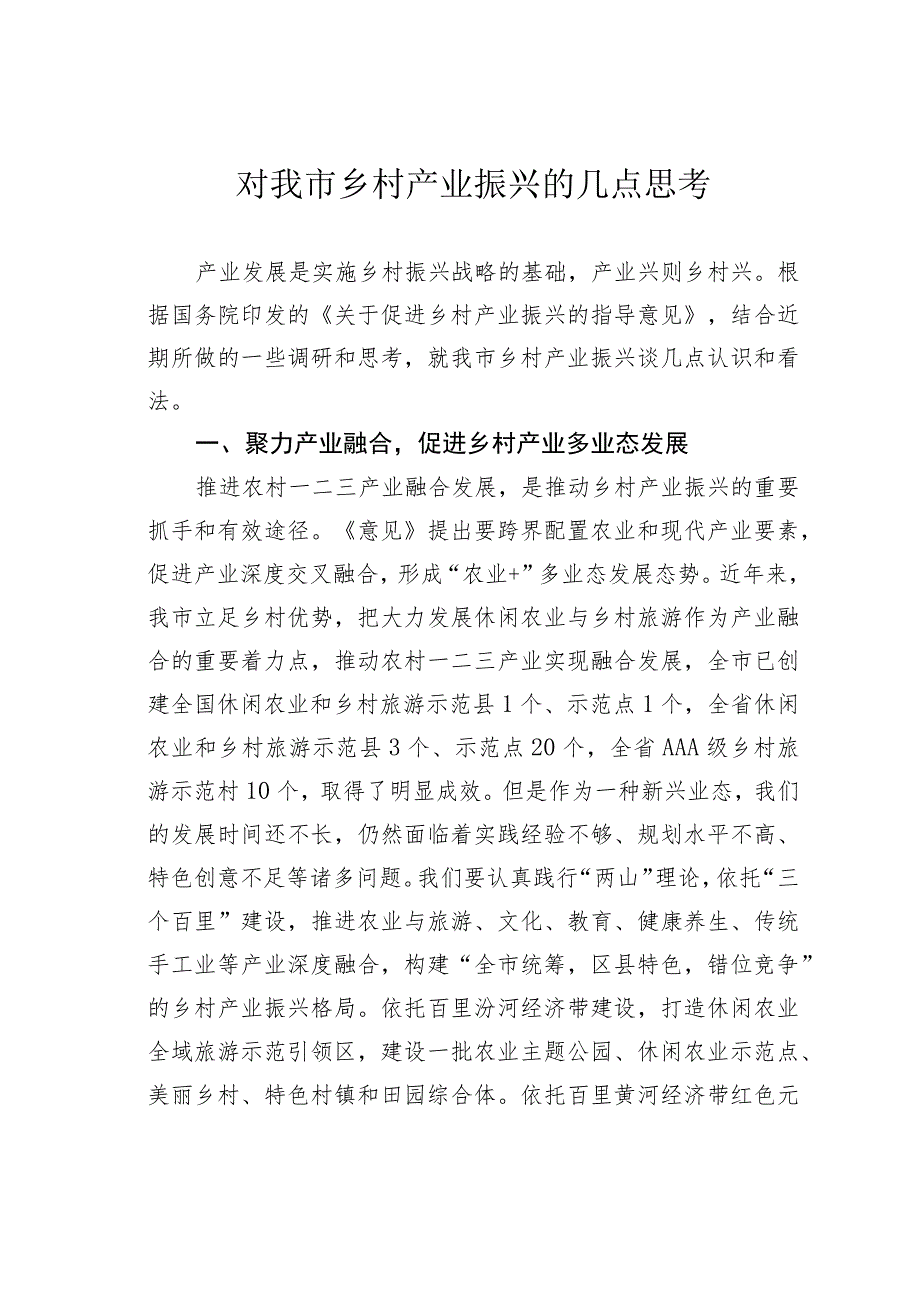 对我市乡村产业振兴的几点思考
产业发展是实施乡村振兴战略的基础，产业兴则乡村兴。根
据国务院印发的《关于促进乡村产业振兴的指导意见》，结合近
期所做的一些调研和思考，就我市乡村产业振兴谈几点认识和看
法。
一、聚力产业融合，促进乡村产业多业态发展
推进农村一二三产业融合发展，是推动乡村产业振兴的重要
抓手和有效途径。《意见》提出要跨界配置农业和现代产业要素，
促进产业深度交叉融合，形成“农业+”多业态发展态势。近年来，
我市立足乡村优势，把大力发展休闲农业与乡村旅游作为产业融
合的重要着力点，推动农村一二三产业实现融合发展，全市已创
建全国休闲农业和乡村旅游示范县 1 个、示范点 1 个，全省休闲
农业和乡村旅游示范县 3 个、示范点 20 个，全省 AAA 级乡村旅
游示范村 10 个，取得了明显成效。但是作为一种新兴业态，我们
的发展时间还不长，仍然面临着实践经验不够、规划水平不高、
特色创意不足等诸多问题。我们要认真践行“两山”理论，依托“三
个百里”建设，推进农业与旅游、文化、教育、健康养生、传统
手工业等产业深度融合，构建“全市统筹，区县特色，错位竞争”
的乡村产业振兴格局。依托百里汾河经济带建设，打造休闲农业
全域旅游示范引领区，建设一批农业主题公园、休闲农业示范点、
美丽乡村、特色村镇和田园综合体。依托百里黄河经济带红色元